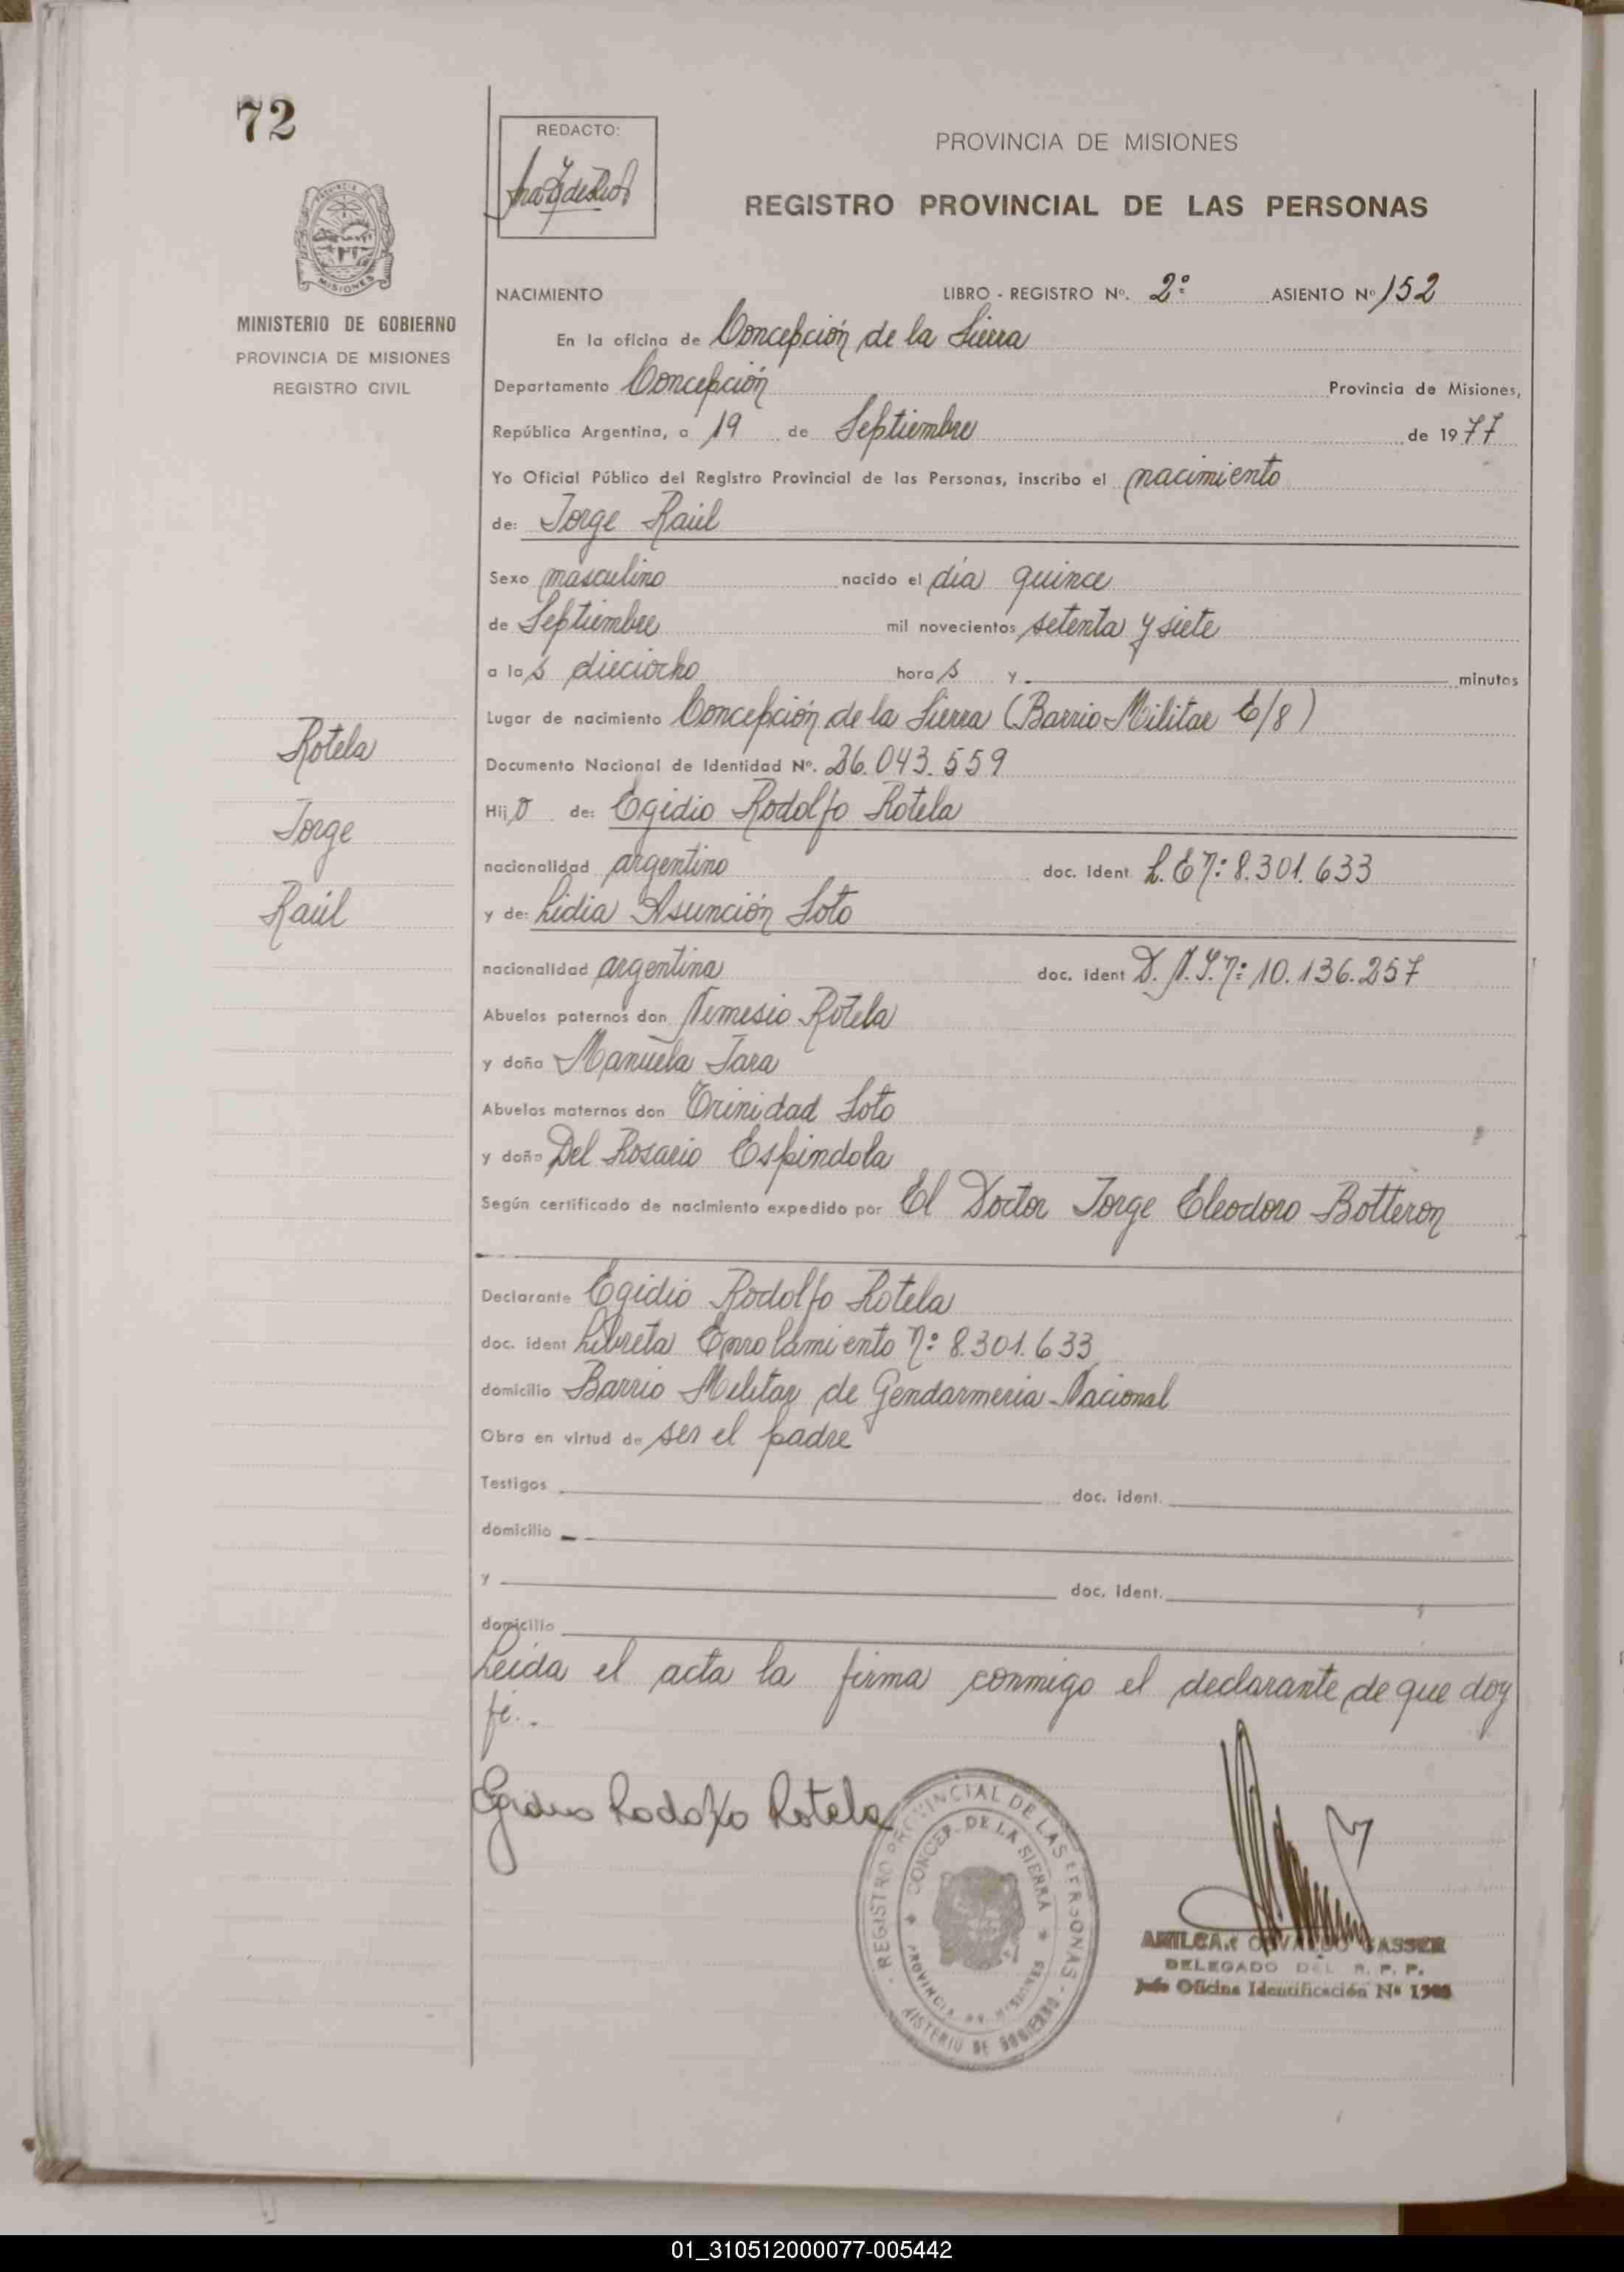 72
REDACTO:
PROVINCIA DE MISIONES
REGISTRO PROVINCIAL DE LAS PERSONAS
PROVINCIA DE
MISIONES
MINISTERIO DE GOBIERNO
PROVINCIA DE MISIONES
REGISTRO CIVIL
NACIMIENTO LIBRO - REGISTRO Nº. 2º ASIENTO Nº 152
En la oficina de Concepción de la Sierra
Departamento Concepción Provincia de Misiones,
República Argentina, a 19 de Septiembre de 1977
Yo Oficial Público del Registro Provincial de las Personas, inscribo el nacimiento
de: Jorge Raúl
Sexo masculino nacido el día quince
de Septiembre mil novecientos setenta y siete
a las dieciocho horas y minutos
Lugar de nacimiento Concepción de la Sierra (Barrio Militar E/8)
Documento Nacional de Identidad Nº. 26.043.559
Hijo de: Egidio Rodolfo Rotela
nacionalidad argentino doc. ident L. E Nº: 8.301.633
y de: Lidia Asunción Soto
nacionalidad argentina doc. ident D. N. I. Nº: 10.136.257
Abuelos paternos don Nemesio Rotela
y doña Manuela Jara
Abuelos maternos don Trinidad Soto
y doña Del Rosario Espindola
Según certificado de nacimiento expedido por El Doctor Jorge Eleodoro Botteron
Declarante Egidio Rodolfo Rotela
doc. ident Libreta Enrolamiento Nº: 8.301.633
domicilio Barrio Militar de Gendarmeria Nacional
Obra en virtud de ser el padre
Testigos doc. ident.
domicilio
y doc. ident.
domicilio
Leida el acta la firma conmigo el declarante de que doy
fé..
Rotela
Jorge
Raúl
Egidio Rodolfo Rotela
REGISTRO PROVINCIAL DE LAS PERSONAS
CONCEP. DE LA SIERRA
PROVINCIA DE MISIONES
MINISTERIO DE GOBIERNO
AMILCAR OSVALDO GASSER
DELEGADO DEL R. P. P.
Jefe Oficina Identificación Nº
01_310512000077-005442